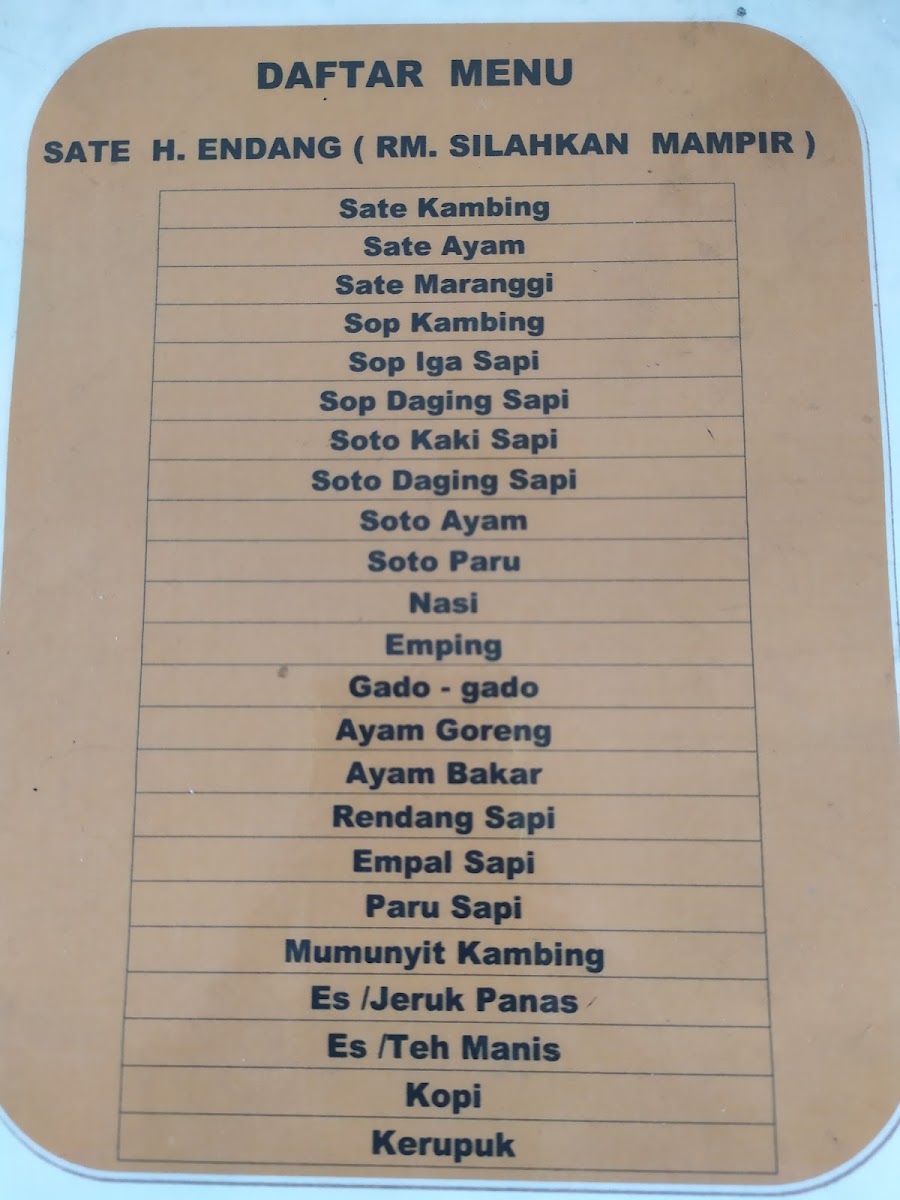 DAFTAR MENU
SATE H. ENDANG ( RM. SILAHKAN MAMPIR )
Sate Kambing
Sate Ayam
Sate Maranggi
Sop Kambing
Sop Iga Sapi
Sop Daging Sapi
Soto Kaki Sapi
Soto Daging Sapi
Soto Ayam
Soto Paru
Nasi
Emping
Gado - gado
Ayam Goreng
Ayam Bakar
Rendang Sapi
Empal Sapi
Paru Sapi
Mumunyit Kambing
Es /Jeruk Panas
Es /Teh Manis
Kopi
Kerupuk